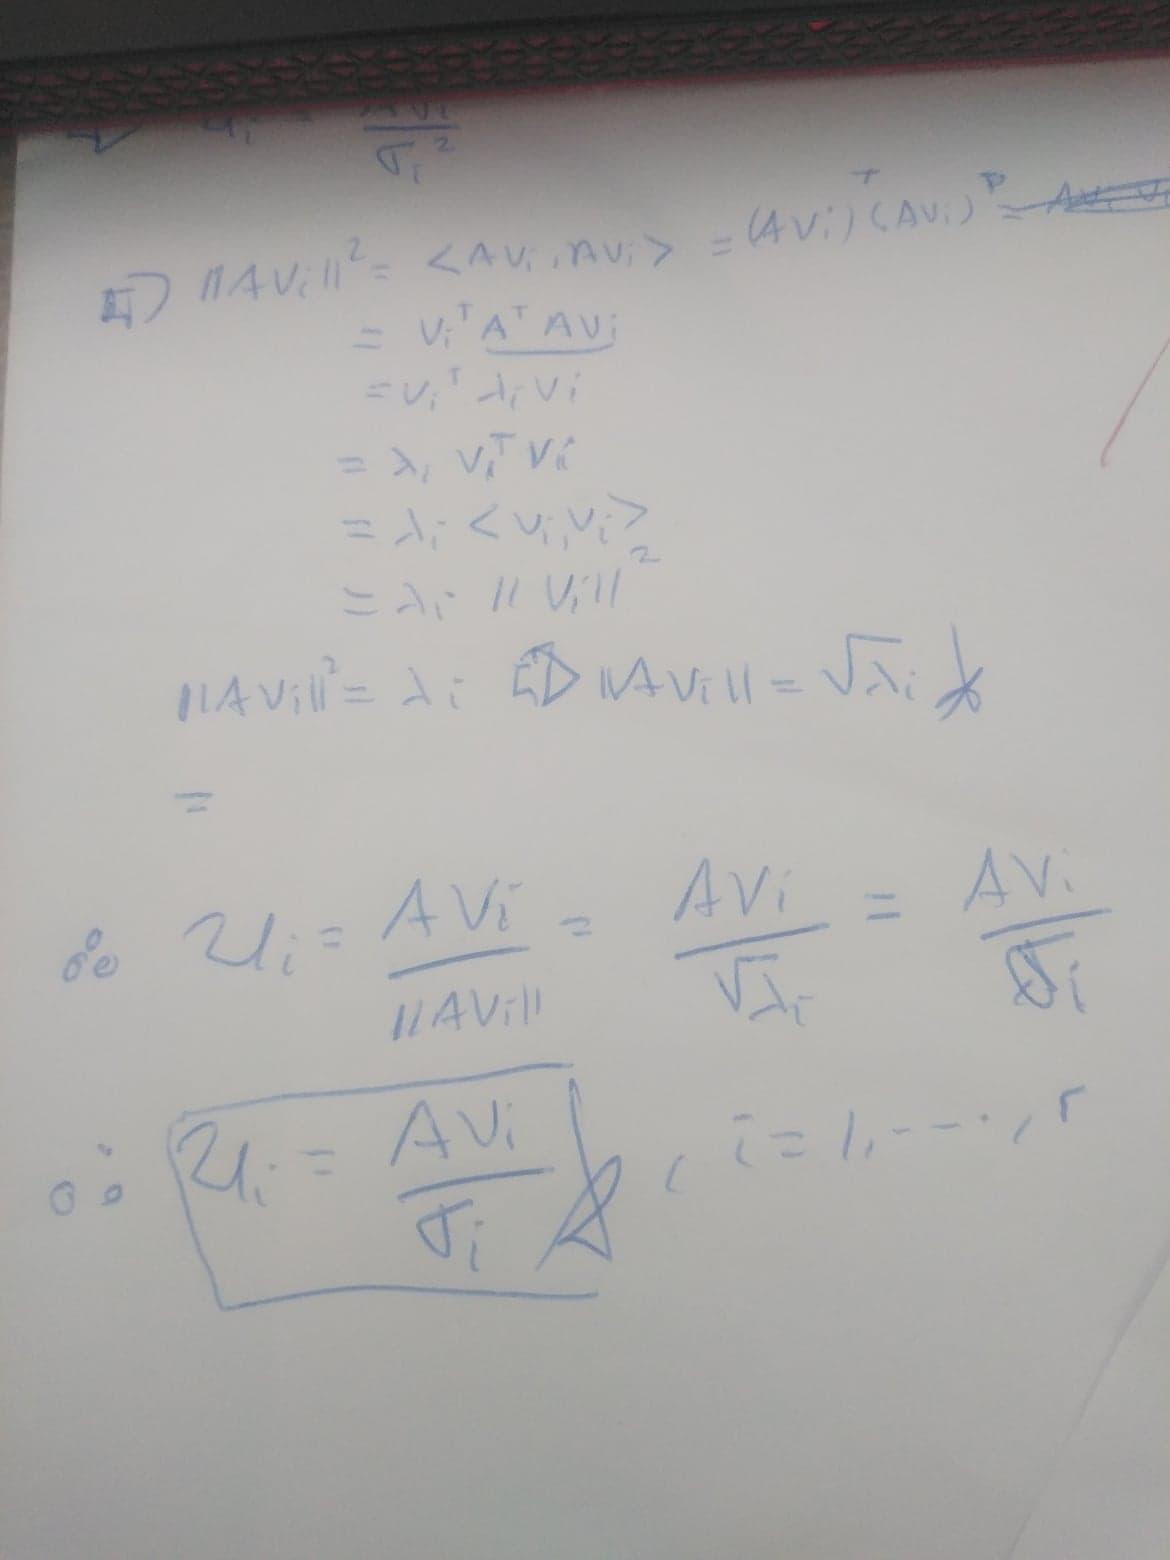 ⇒ uᵢ = AVᵢ / σᵢ²
⇒ ||AVᵢ||² = <AVᵢ, AVᵢ> = (AVᵢ)ᵀ(AVᵢ) =
= Vᵢᵀ Aᵀ AVᵢ
= Vᵢᵀ λᵢ Vᵢ
= λᵢ Vᵢᵀ Vᵢ
= λᵢ <Vᵢ, Vᵢ>
= λᵢ ||Vᵢ||²
||AVᵢ||² = λᵢ ⇒ ||AVᵢ|| = √λᵢ
=
∴ uᵢ = AVᵢ / ||AVᵢ|| = AVᵢ / √λᵢ = AVᵢ / σᵢ
∴ uᵢ = AVᵢ / σᵢ , i = 1, ---, r